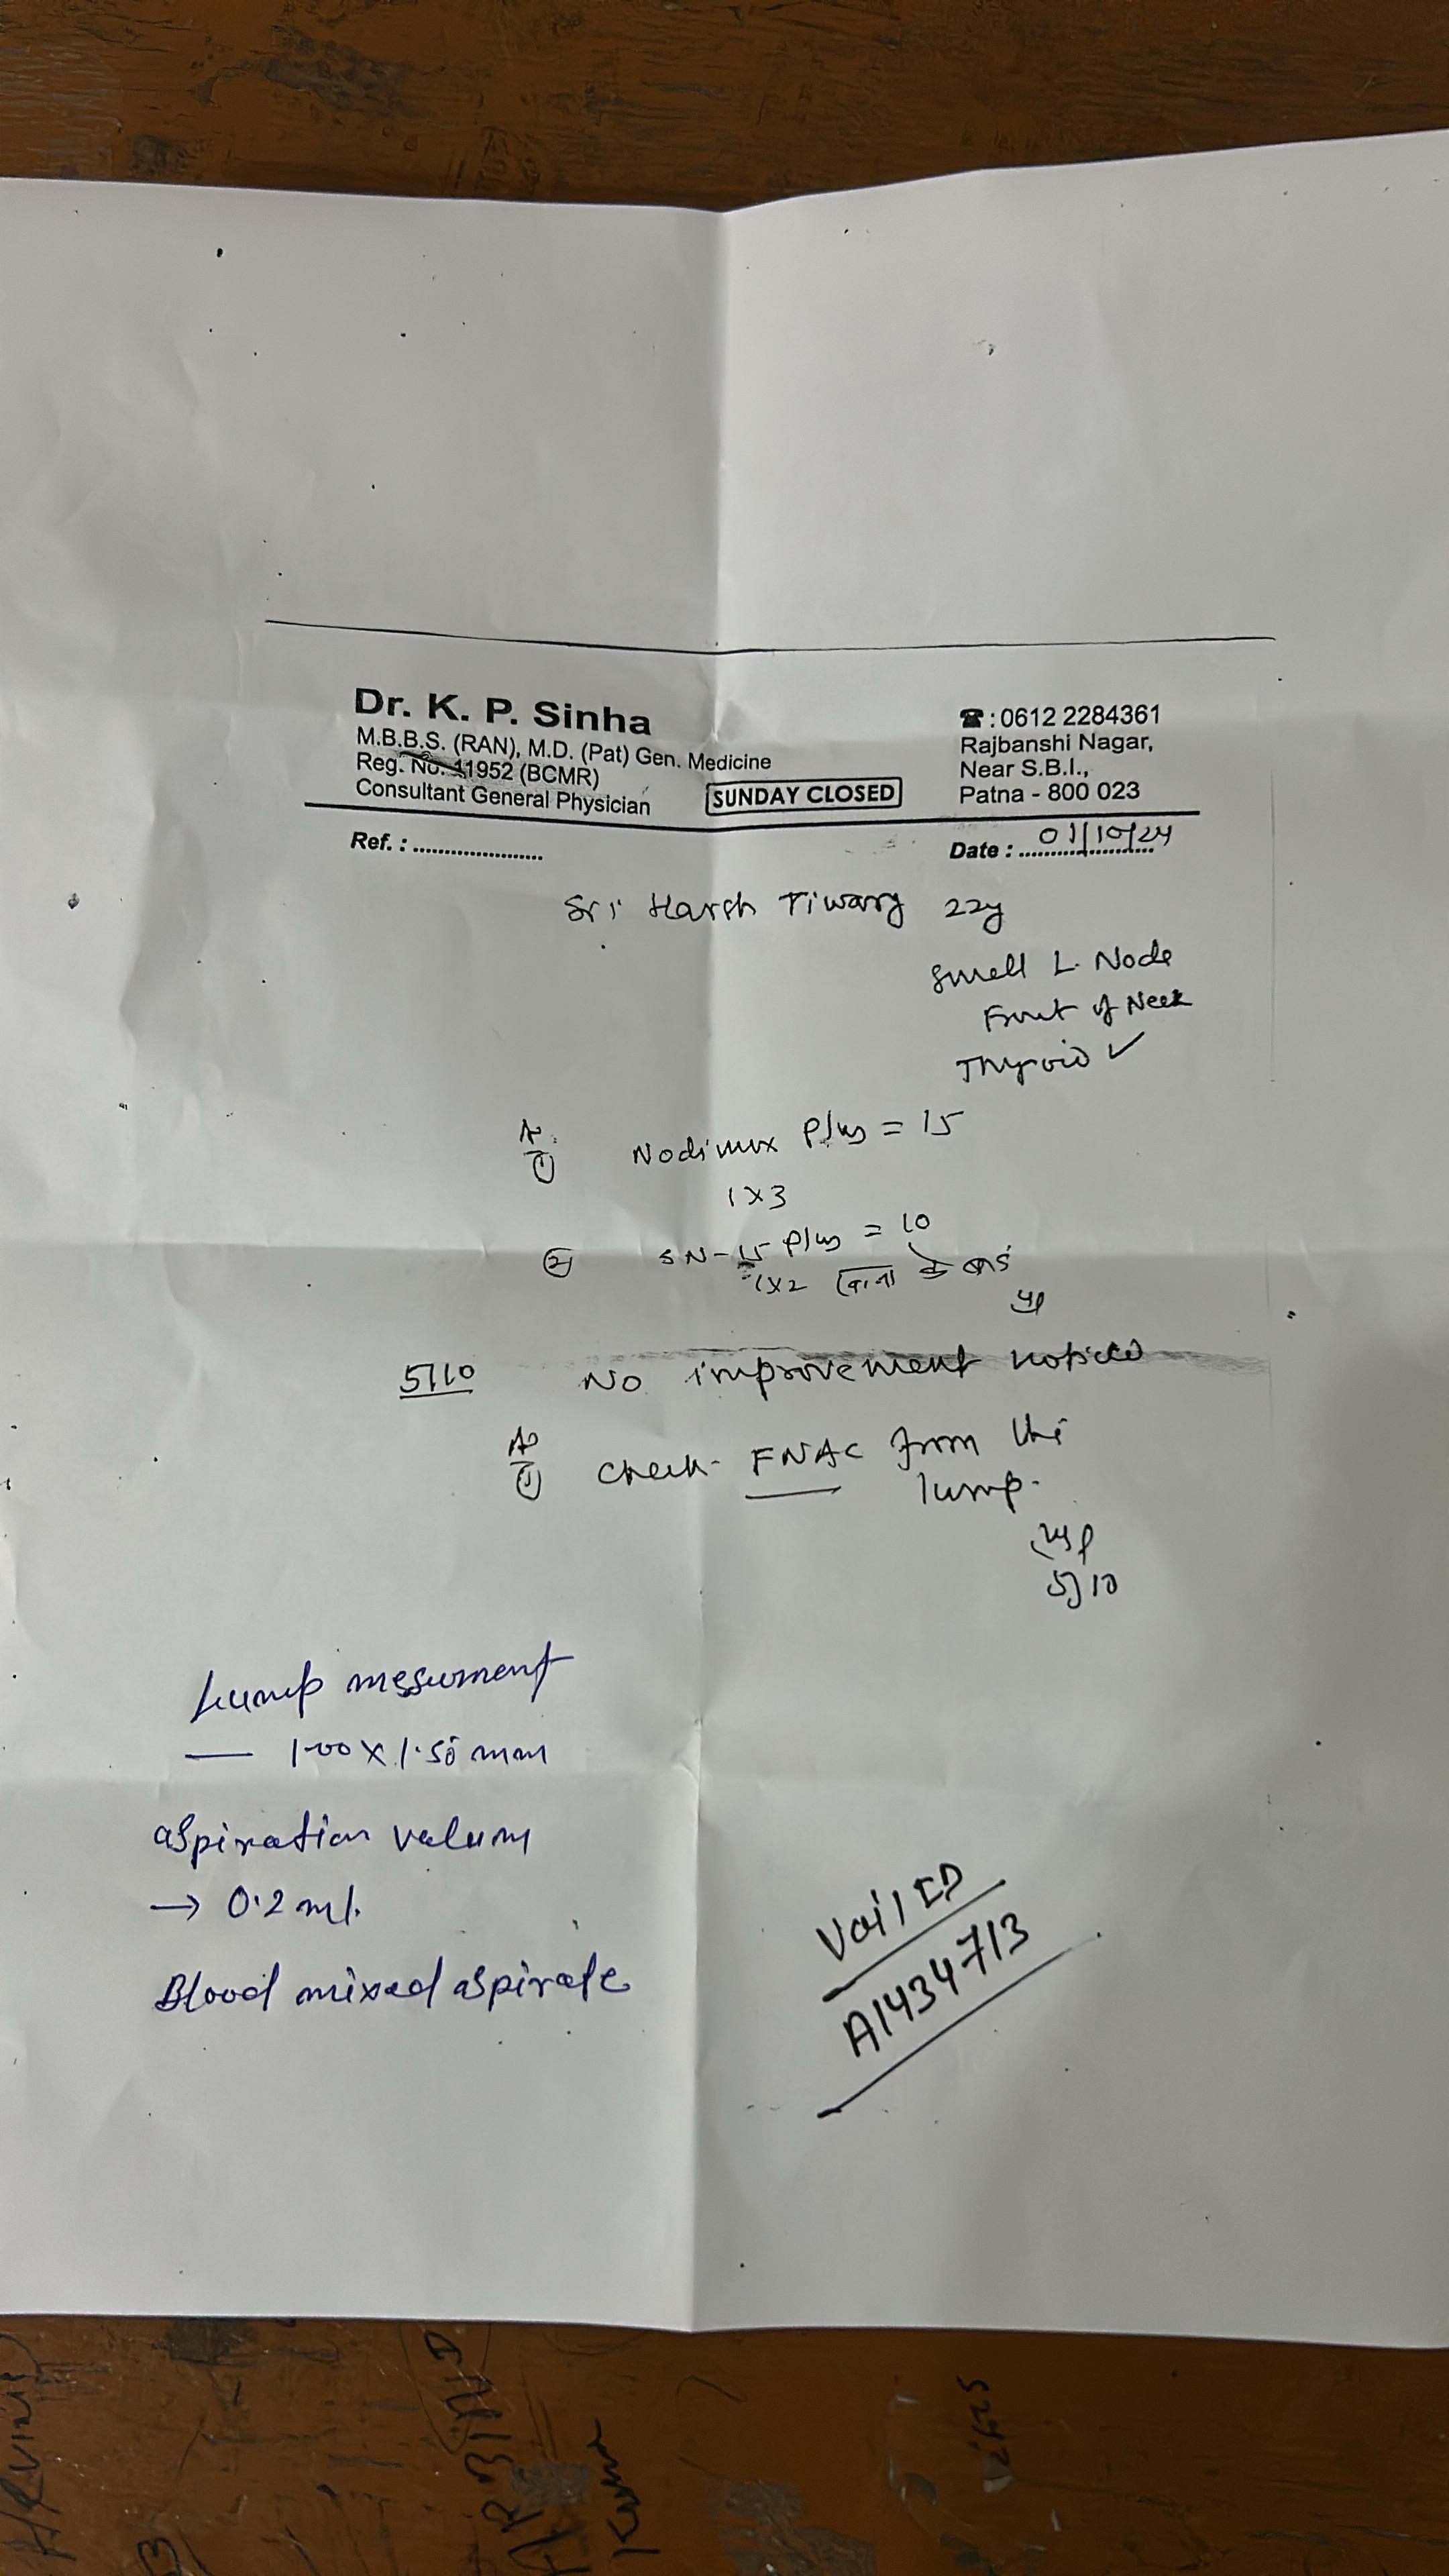 Dr. K. P. Sinha
M.B.B.S. (RAN), M.D. (Pat) Gen. Medicine
Reg. No. 11952 (BCMR)
Consultant General Physician
SUNDAY CLOSED
☎ : 0612 2284361
Rajbanshi Nagar,
Near S.B.I.,
Patna - 800 023
Ref. : ......................
Date : 01/10/24
Sri Harsh Tiwary 22y
Small L. Node
Front of Neck
Thyroid ✓
① Nodimux Plus = 15
1 x 3
② SN-15 Plus = 10
1x2 खाना के बाद
5/10 No improvement noticed
① Check FNAC from the
lump.
5/10
Lump mesument
— 1.00 x 1.50 mm
aspiration valum
→ 0.2 ml.
Blood mixed aspirate
Vail ID
A1434713
ARBIND
Kumar